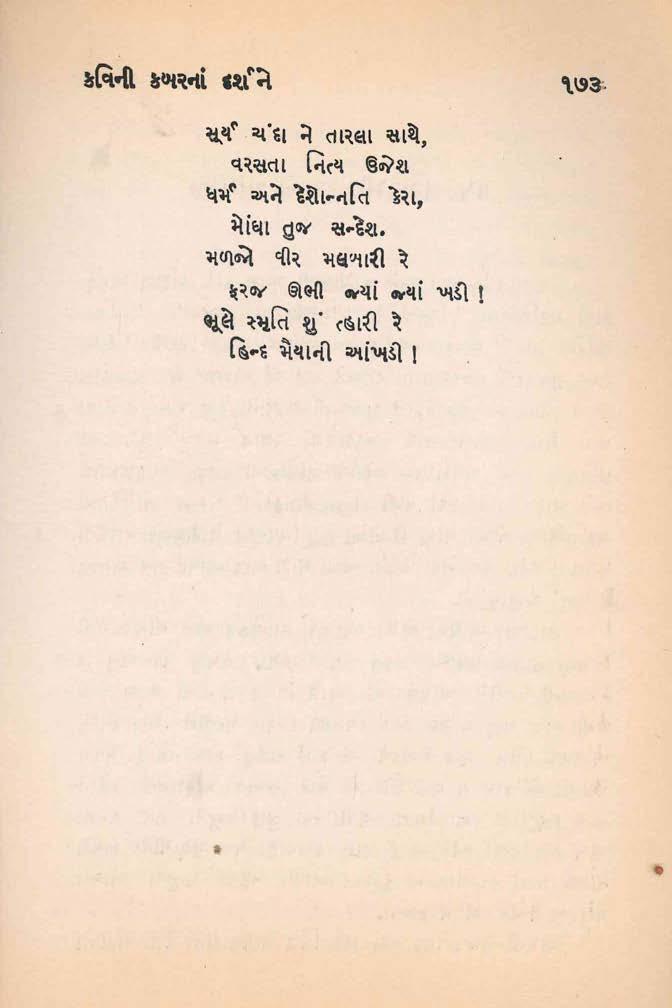 કવિની કબરનાં દર્શને ૧૭૩
સૂર્ય ચંદા ને તારલા સાથે,
વરસતા નિત્ય ઉજેશ
ધર્મ અને દેશોન્નતિ કેરા,
મોંઘા તુજ સન્દેશ.
મળજો વીર મલબારી રે
ફરજ ઊભી જ્યાં જ્યાં ખડી !
ભૂલે સ્મૃતિ શું ત્હારી રે
હિન્દ મૈયાની આંખડી !